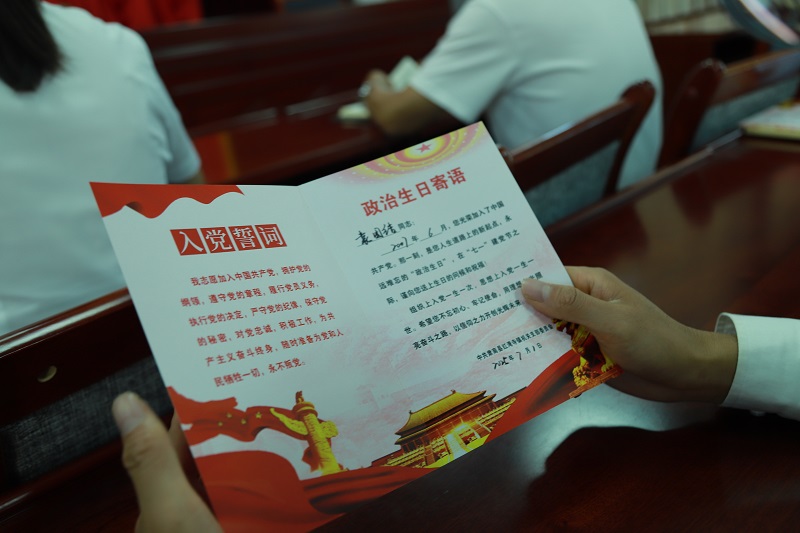 入党誓词
我志愿加入中国共产党，拥护党的
纲领，遵守党的章程，履行党员义务，
执行党的决定，严守党的纪律，保守党
的秘密，对党忠诚，积极工作，为共
产主义奋斗终身，随时准备为党和人
民牺牲一切，永不叛党。
政治生日寄语
同志：
2007年6月，您光荣加入了中国
共产党，那一刻，是您人生道路上的新起点，永
远难忘的“政治生日”，在“七一”建党节之
际，谨向您送上生日的问候和祝福！
组织上入党一生一次，思想上入党一生一
世，希望您不忘初心、牢记使命，
亮奋斗之路，以信仰之力开创光辉未
中共肃南县红湾寺镇机关支部委员
7月1日